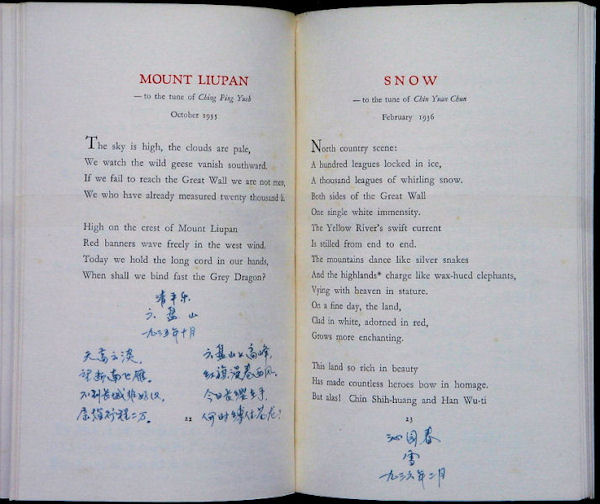 MOUNT LIUPAN
— to the tune of Ching Ping Yueh
October 1935
The sky is high, the clouds are pale,
We watch the wild geese vanish southward.
If we fail to reach the Great Wall we are not men,
We who have already measured twenty thousand li.
High on the crest of Mount Liupan
Red banners wave freely in the west wind.
Today we hold the long cord in our hands,
When shall we bind fast the Grey Dragon?
清平乐
六盘山
一九三五年十月
天高云淡,
望断南飞雁。
不到长城非好汉,
屈指行程二万。
六盘山上高峰,
红旗漫卷西风。
今日长缨在手,
何时缚住苍龙?
22
SNOW
— to the tune of Chin Yuan Chun
February 1936
North country scene:
A hundred leagues locked in ice,
A thousand leagues of whirling snow.
Both sides of the Great Wall
One single white immensity.
The Yellow River's swift current
Is stilled from end to end.
The mountains dance like silver snakes
And the highlands* charge like wax-hued elephants,
Vying with heaven in stature.
On a fine day, the land,
Clad in white, adorned in red,
Grows more enchanting.
This land so rich in beauty
Has made countless heroes bow in homage.
But alas! Chin Shih-huang and Han Wu-ti
23
沁园春
雪
一九三六年二月